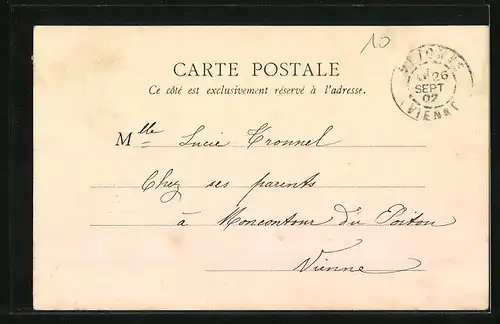 10
CARTE POSTALE
Ce côté est exclusivement réservé à l'adresse.
26
SEPT
02
VIENNE
Mlle Lucie Tronnel
Chez ses parents
à Moncontour du Poitou
Vienne